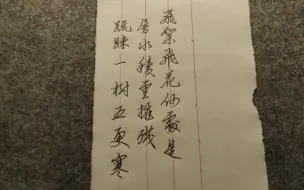 飛絮飛花何處是
層冰積雪摧殘
疏疏一樹五更寒